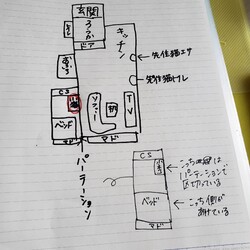 玄関
ろうか
ドア
キッチン
先住猫エサ
先住猫トイレ
CS
ベッド
ソファー
TV
マド
マド
パーテーション
CS
こっち側は
パーテーションで
区切っている
ベッド
こっち側が
あけている